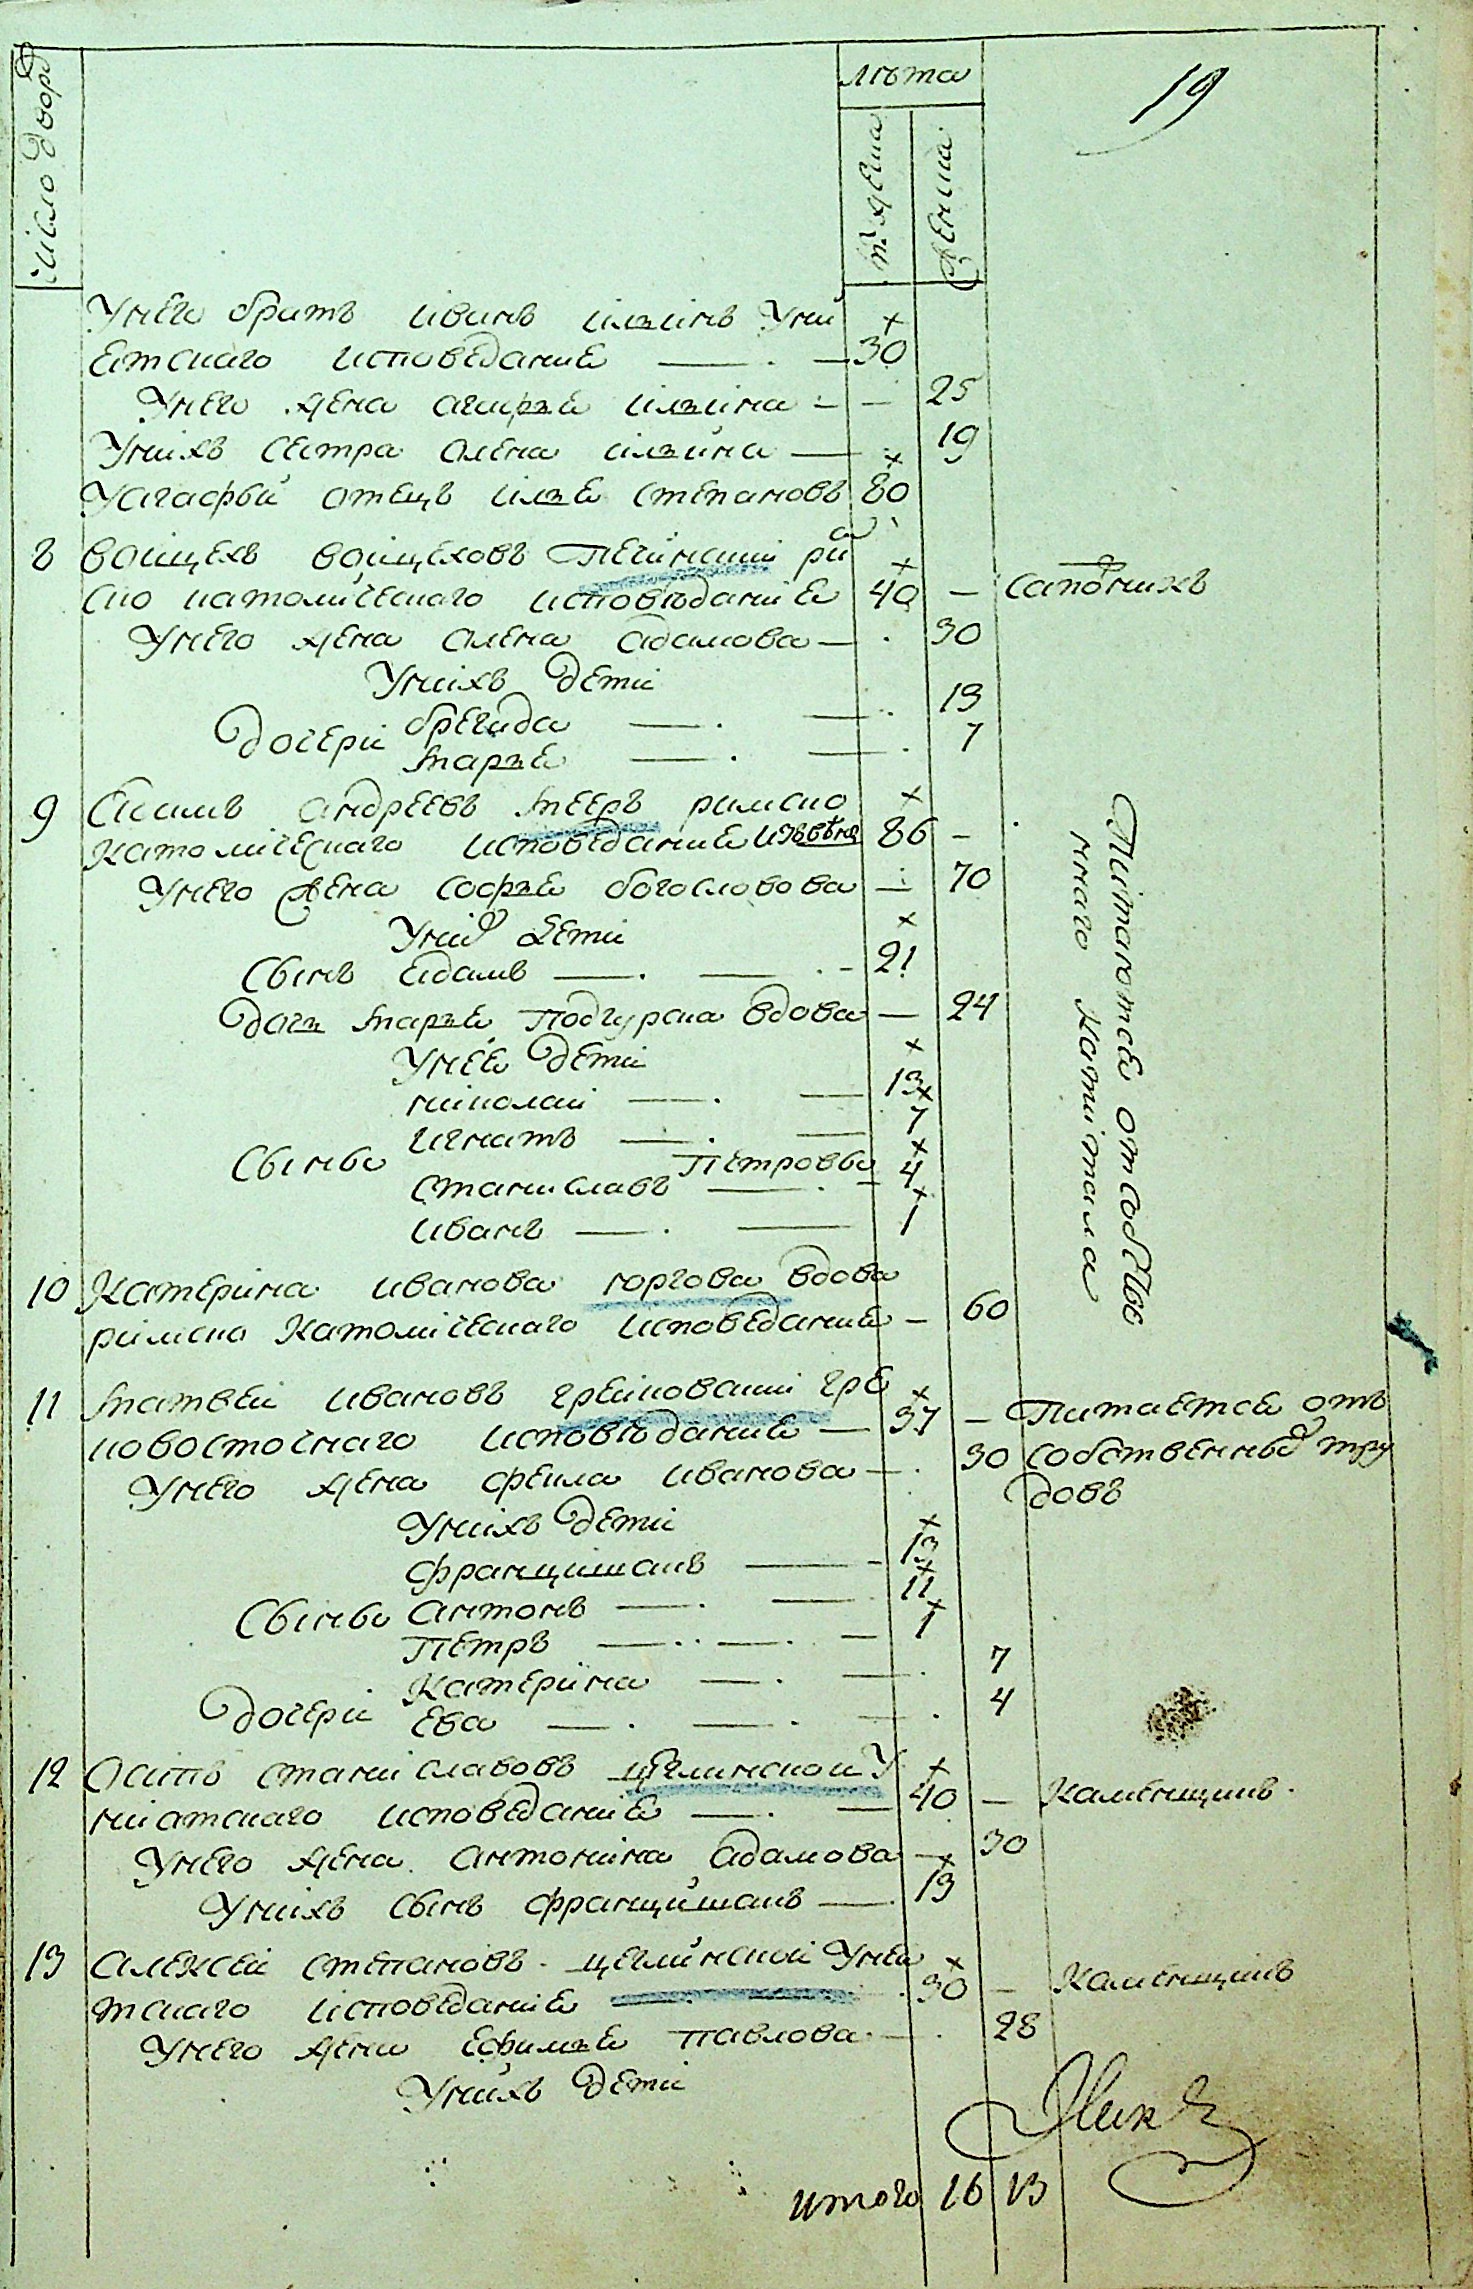 число дворо
лѣта
19
мужеска
женска
Унего братъ іванъ ілінъ Уни
етскаго исповедание 30
Унего жена агафье ільіна 25
Унихъ сестра олена ільіна 19
Уагафьи отецъ ілье степановъ 80
8 войцехъ войцеховъ Печинский рим
ско католическаго исповѣдание 40 – сапожникъ
Унего жена олена адамова 30
Унихъ дети
дочери бренгда 13
марье 7
9 андреевъ меерь римско
католическаго исповедание 86 –
Унего жена софье богословова 70
Уних дети
Сынъ адамъ 21
дочь марье подгурска вдова 24
Унее дети
николаи 13
игнатъ 7
Сыны Петровы
станиславъ 4
иванъ 1
Питаютсе отсобстве
ннаго капитала
10 Катерина иванова юргова вдова
римско католическаго исповедание – 60
11 матвеи ивановъ грейновский гре
ковосточнаго исповѣдание 37 – Питаетсе отъ
собственных тру
довъ
Унего жена фекла иванова 30
Унихъ дети
францишакъ 13
Сыны антонъ 11
Петръ 1
Катерина 7
дочери ева 4
12 Осипъ станиславовъ цеглинской У
ниатскаго исповедание 40 – Каменщикъ
Унего жена антонина адамова 30
Унихъ сынъ францишакъ 13
13 алексеи степановъ цеглинской Униа
тскаго исповедание 30 – Каменщикъ
Унего жена ефимье павлова 28
Унихъ дети
итого 16 13